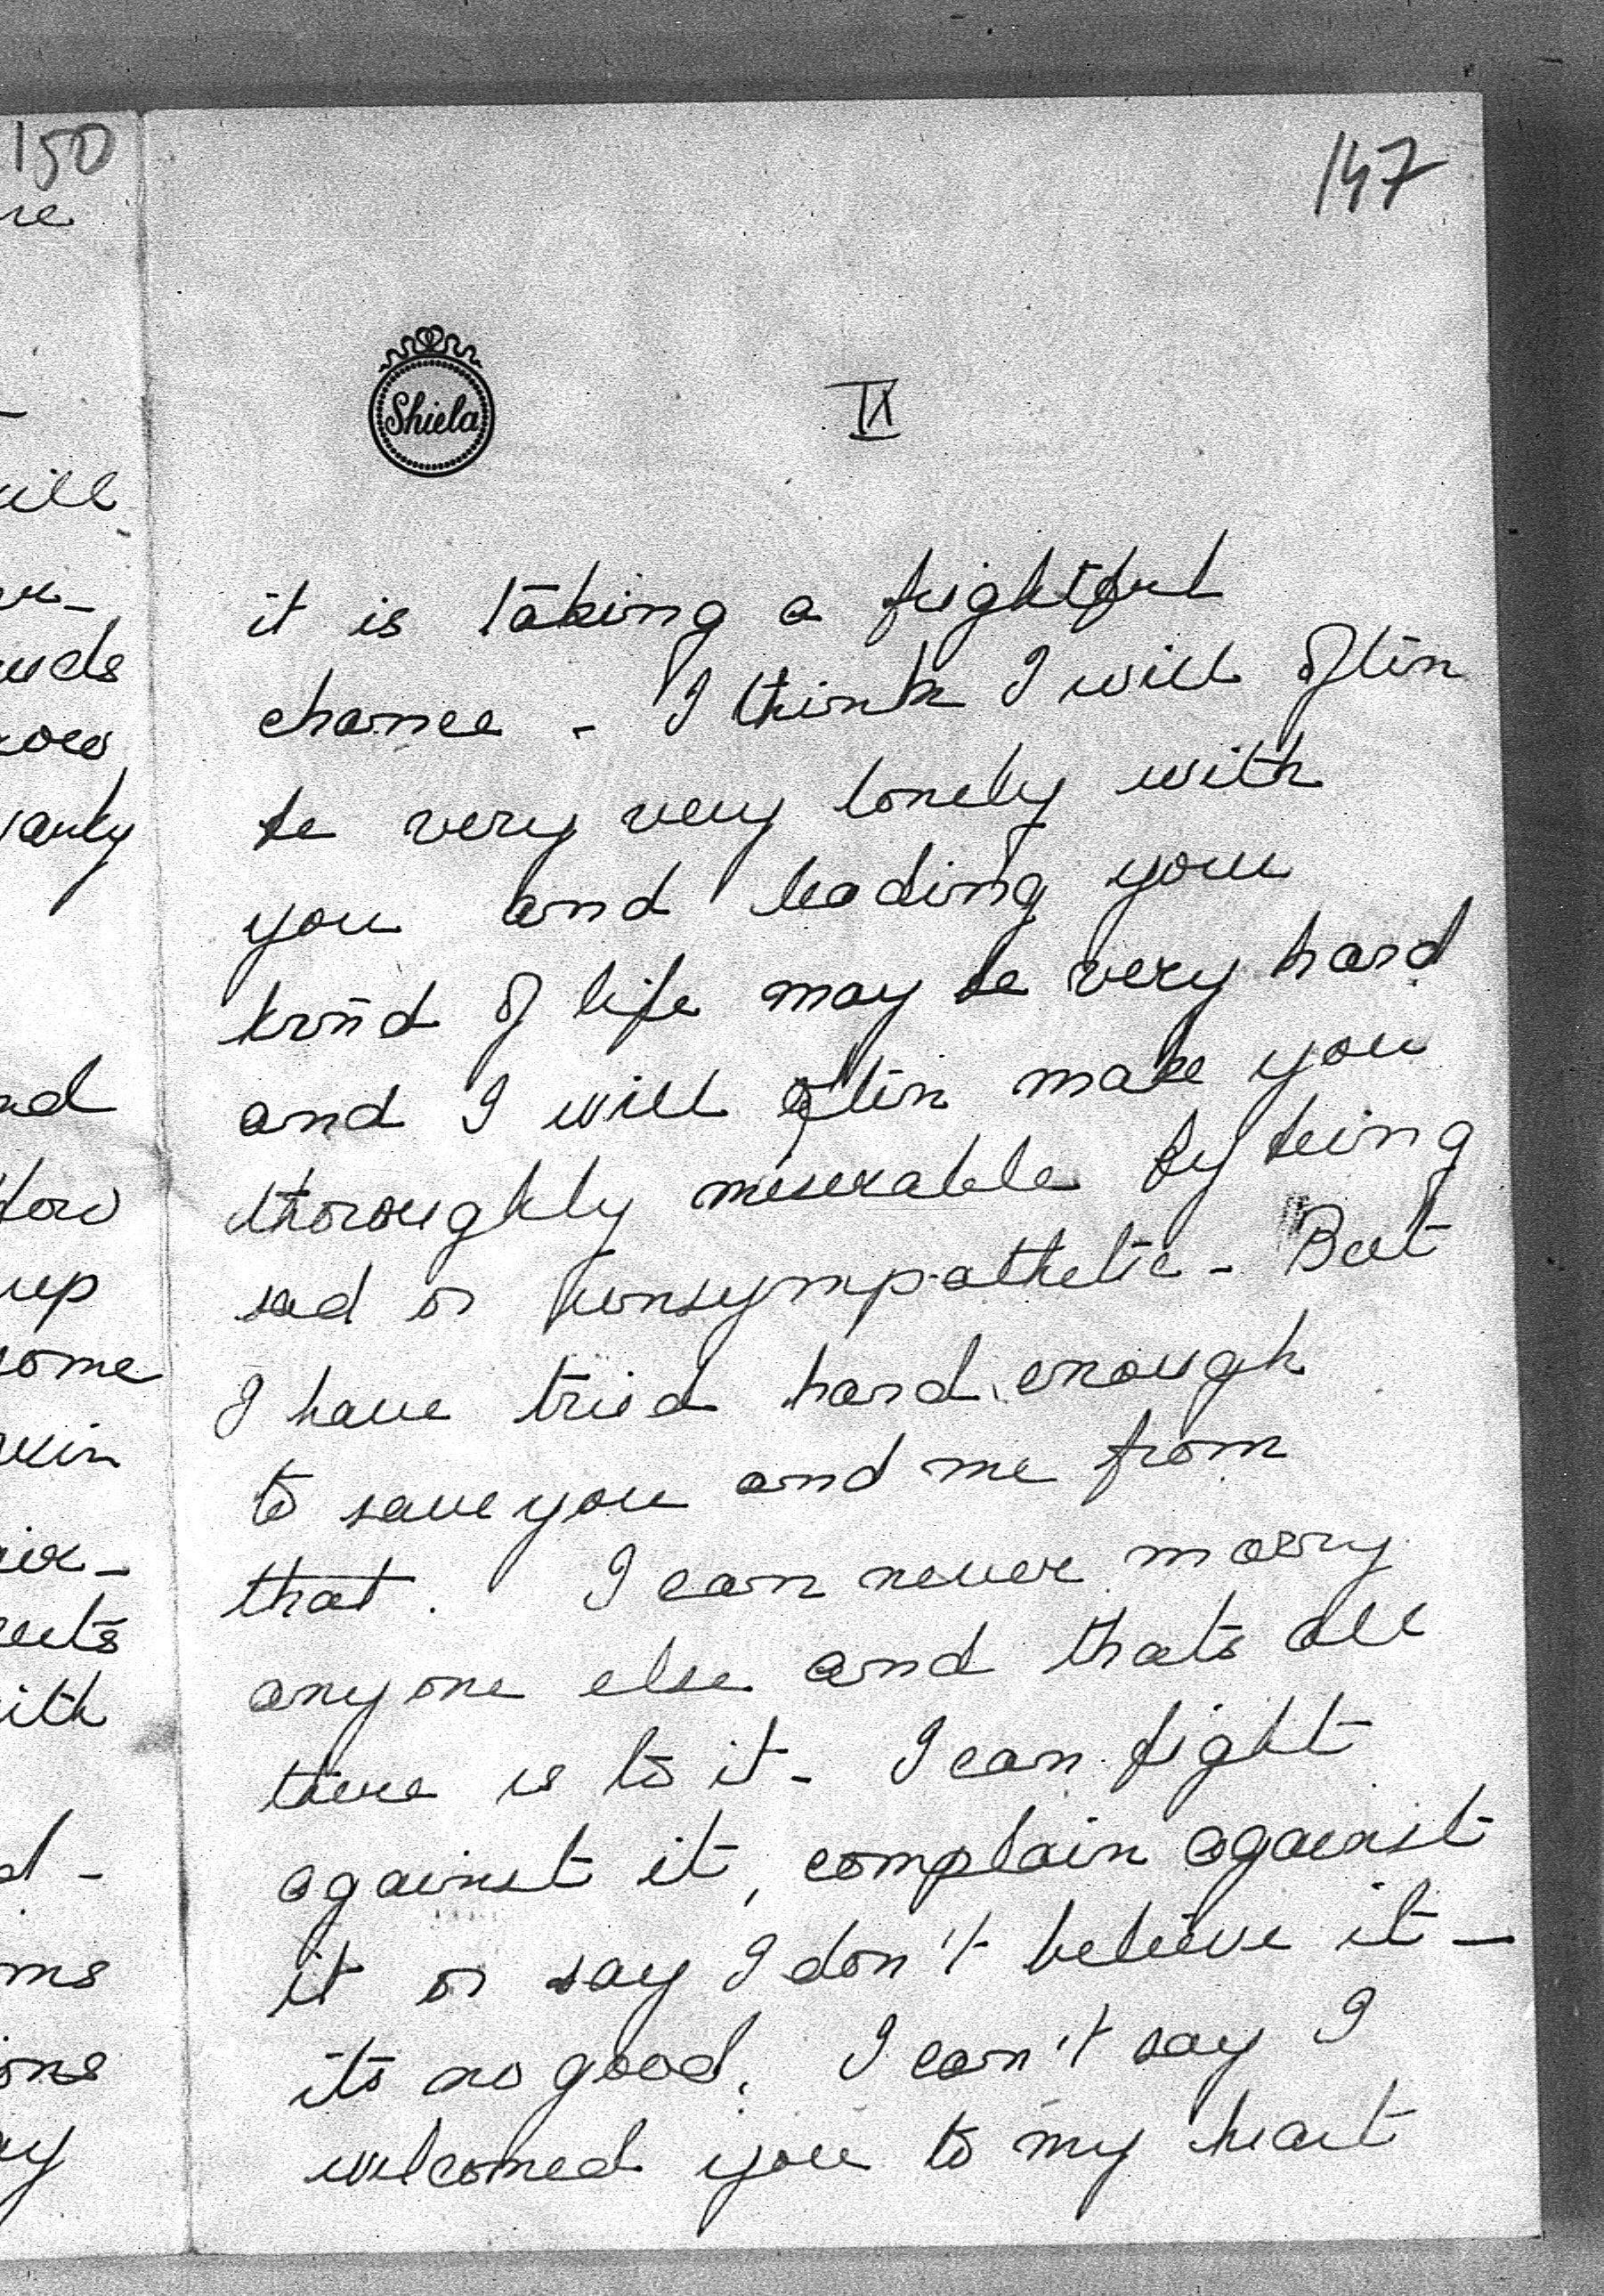 150
re
ill
ow
arly
nd
up
some
with
ms
ons
ay
147
Shiela
IX
it is taking a frightful
chance - I think I will often
be very very lonely with
you and leading your
kind of life may be very hard
and I will often make you
thoroughly miserable by being
sad or unsympathetic - But
I have tried hard enough
to save you and me from
that. I can never marry
anyone else and thats all
there is to it - I can fight
against it, complain against
it or say I don't believe it -
its no good. I can't say I
welcomed you to my heart